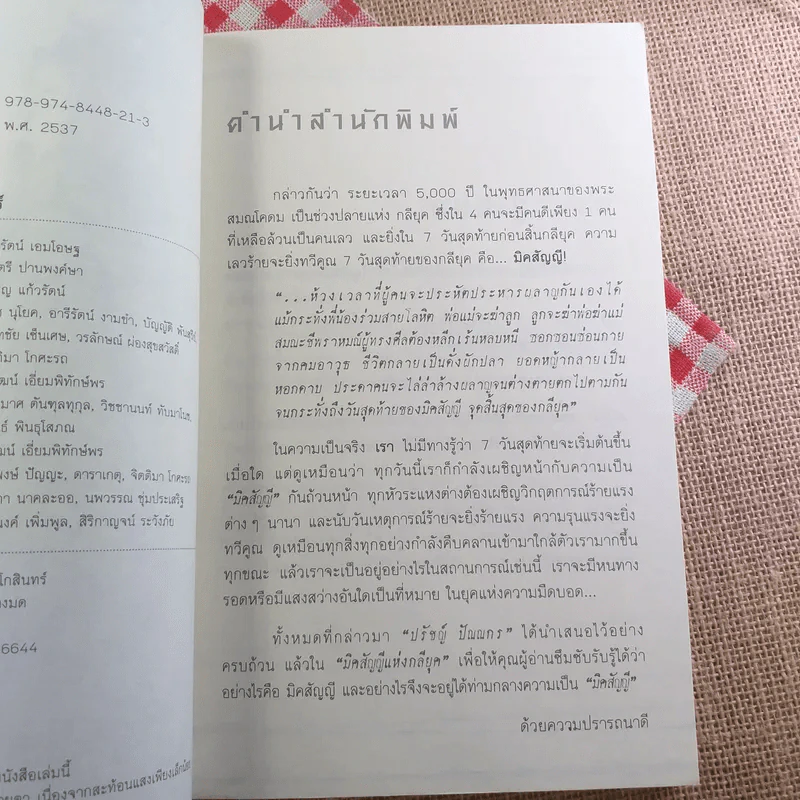 978-974-8448-21-3
พ.ศ. 2537
รัตน์ เอมโอษฐ
ตรี ปานพงศ์ษา
ญ แก้วรัตน์
นุโยค, อารีรัตน์ งามขำ, บัญญัติ
ทชัย เซ็นเศษ, วรลักษณ์ ผ่องสุขสวัสดิ์
ติมา โกศะรถ
วัฒน์ เอี่ยมพิทักษ์พร
มาศ ตันฑุลฑุกุล, วิชชานนท์ ทับมาโนช,
ธ์ พินธุโสภณ
ฒน์ เอี่ยมพิทักษ์พร
พงษ์ ปัญญะ, ดาราเกตุ, จิตติมา โกศะรถ
ภา นาคละออ, นพวรรณ ชุ่มประเสริฐ
นงศ์ เพิ่มพูล, สิริกาญจน์ ระวังภัย
โกสินทร์
งมด
6644
นังสือเล่มนี้
เนื่องจากสะท้อนแสงเพียงเล็กน้อย
คำนำสำนักพิมพ์
กล่าวกันว่า ระยะเวลา 5,000 ปี ในพุทธศาสนาของพระ
สมณโคดม เป็นช่วงปลายแห่ง กลียุค ซึ่งใน 4 คนจะมีคนดีเพียง 1 คน
ที่เหลือล้วนเป็นคนเลว และยิ่งใน 7 วันสุดท้ายก่อนสิ้นกลียุค ความ
เลวร้ายจะยิ่งทวีคูณ 7 วันสุดท้ายของกลียุค คือ... มิคสัญญี!
“...ห้วงเวลาที่ผู้คนจะประหัตประหารผลาญกันเองได้
แม้กระทั่งพี่น้องร่วมสายโลหิต พ่อแม่จะฆ่าลูก ลูกจะฆ่าพ่อฆ่าแม่
สมณะชีพราหมณ์ผู้ทรงศีลต้องหลีกเร้นหลบหนี ซอกซอนซ่อนกาย
จากคมอาวุธ ชีวิตกลายเป็นดั่งผักปลา ยอดหญ้ากลายเป็น
หอกดาบ ประดาคนจะไล่ล่าล้างผลาญจนต่างตายตกไปตามกัน
จนกระทั่งถึงวันสุดท้ายของมิคสัญญี จุดสิ้นสุดของกลียุค”
ในความเป็นจริง เรา ไม่มีทางรู้ว่า 7 วันสุดท้ายจะเริ่มต้นขึ้น
เมื่อใด แต่ดูเหมือนว่า ทุกวันนี้เราก็กำลังเผชิญหน้ากับความเป็น
“มิคสัญญี” กันถ้วนหน้า ทุกหัวระแหงต่างต้องเผชิญวิกฤตการณ์ร้ายแรง
ต่าง ๆ นานา และนับวันเหตุการณ์ร้ายจะยิ่งร้ายแรง ความรุนแรงจะยิ่ง
ทวีคูณ ดูเหมือนทุกสิ่งทุกอย่างกำลังคืบคลานเข้ามาใกล้ตัวเรามากขึ้น
ทุกขณะ แล้วเราจะเป็นอยู่อย่างไรในสถานการณ์เช่นนี้ เราจะมีหนทาง
รอดหรือมีแสงสว่างอันใดเป็นที่หมาย ในยุคแห่งความมืดบอด...
ทั้งหมดที่กล่าวมา “ปรัชญ์ ปัณณกร” ได้นำเสนอไว้อย่าง
ครบถ้วน แล้วใน “มิคสัญญีแห่งกลียุค” เพื่อให้คุณผู้อ่านซึมซับรับรู้ได้ว่า
อย่างไรคือ มิคสัญญี และอย่างไรจึงจะอยู่ได้ท่ามกลางความเป็น “มิคสัญญี”
ด้วยความปรารถนาดี